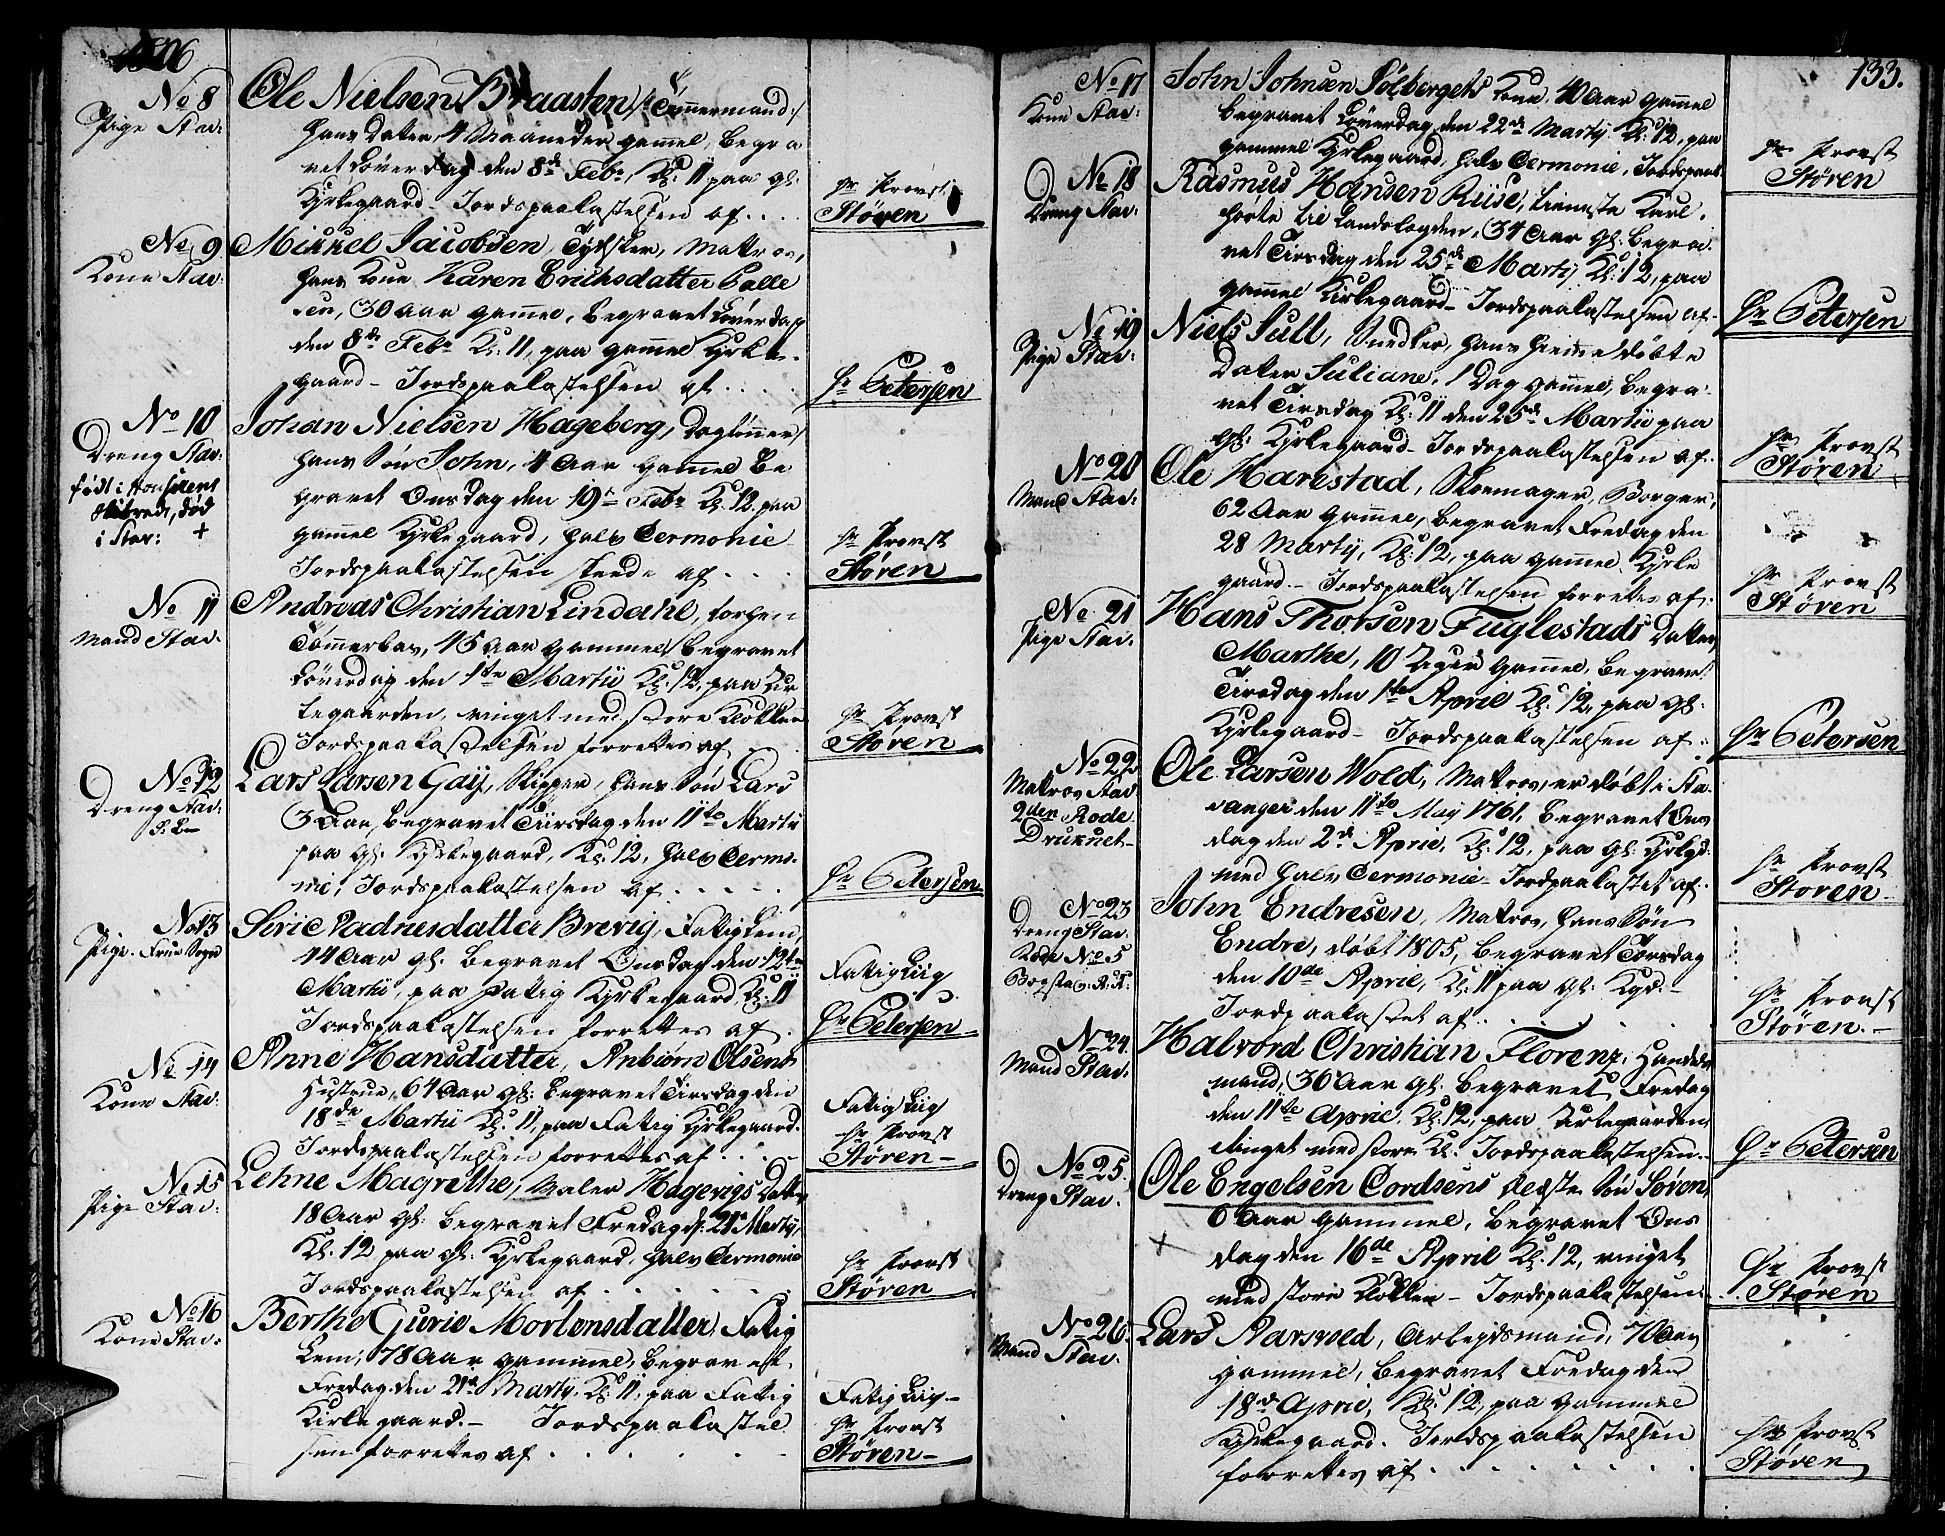 1806
No 8
Pige Stav:
Ole Nielsen Braasten /: Tömmermand :/
hans Datter 4 Maaneder gammel, begra
vet Löverdag den 8de Febr, Kl: 11 paa gl:
Kyrkegaard - Jordspaakastelsen af . . .
Hr Provst
Støren
No 9
Kone Stav:
Mikkel Jacobsen, Tydsker, Mattros,
hans Kone Karen Erichsdatter Colle
sen, 30 Aar gammel, begravet Löverdag
den 8de Febr Kl: 11, paa gammel Kyrke-
gaard - Jordspaakastelsen af . . .
Hr Petersen
No 10
Dreng Stav:
födt i
död
i Stav: +
Johan Nielsen Hageberg, Daglönner,
hans Sön John, 4 Aar gammel be
gravet Onsdag den 19de Febr Kl: 12, paa
gammel Kyrkegaard, halv Cermonie
Jordspaakastelsen skeede af . . .
Hr Provst
Støren
No 11
Mand Stav:
Andreas Christian Lindahl, forhen
45 Aar gammel, begravet
Löverdag den 1ste Martii Kl: 12, paa Kir
kegaarden, ringet med store Klokken
Jordspaakastelsen forrettes af
Hr Provst
Støren
No 12
Dreng Stav:
Lars Larsen Gaÿ, Skipper, hans Sön Lars
3 Aar, begravet Tiirsdag den 11te Martii
paa gl: Kyrkegaard, Kl: 12, halv Cermo-
nie, Jordspaakastelsen af . . . . .
Hr Petersen
No 13
Pige. Frue Sogn
Sirie Aadnesdatter Brevig, Fattiglem,
44 Aar gl: begravet Onsdag den 12te
Martii, paa Fattig Kyrkegaard, Kl: 11
Jordspaakastelsen forrettes af .
Fattig Liig
Hr Petersen
No 14
Kone Stav:
Anne Hansdatter, Anbiörn Olsens
Hustrue, 64 Aar gl: begravet Tirsdag den
18de Martii Kl: 11, paa Fattig Kyrkegaard.
Jordspaakastelsen forrettes af . . .
Fattig Liig
Hr Provst
Støren -
No 15
Pige Stav:
Lehne Magrethe, Maler Hagevigs Datter,
18 Aar gl: begravet Fredag d: 21de Martÿ,
Kl: 12 paa gl: Kyrkegaard, halv Cermonie
Jordspaakastelsen af . . . . .
Hr Provst
Støren
No 16
Kone Stav:
Berthe Gurie Mortensdatter, Fattig
Lem, 78 Aar gammel, begravet
Fredag den 21de Martÿ, Kl: 11, paa Fattig
Kirkegaard. - Jordspaakastel
sen forrettes af . . . . .
Fattig Liig -
Hr Provst
Støren -
133.
No 17
Kone Stav:
John Johnsen Solbergets Kone, 40 Aar gammel
begravet Löverdag den 22de Martÿ Kl: 12, paa
gammel Kyrkegaard, halv Cermonie, Jordspaak:
Hr Provst
Støren
No 18
Dreng Stav:
Rasmus Hansen Riise, tieneste Karl,
hörte til Landsfogden, 34 Aar gl: begra
vet Tirsdag den 25de Martÿ Kl: 12, paa
gammel Kirkegaard - Jordspaakastelsen af -
Hr Petersen
No 19
Pige Stav:
Niels Jull, Snedker, hans hiemmedöbte
Datter Juliane, 1 Dag gammel, begra-
vet Tirsdag Kl: 11 den 25de Martii paa
gl: Kyrkegaard - Jordspaakastelsen af -
Hr Provst
Støren
No 20
Mand Stav:
Ole Harestad, Skomager, Borger,
62 Aar gammel, begravet Fredag den
28 Martÿ, Kl: 12, paa gammel Kyrke
gaard. - Jordspaakastelsen forrettes af.
Hr Provst
Støren
No 21
Pige Stav:
Hans Thorsen Fuglestads Datter
Marthe, 10 Uger gammel, begravet
Tirsdag den 1ste April Kl: 12, paa gl:
Kyrkegaard - Jordspaakastelsen af .
Hr Petersen
No 22
Matros Stav
2den Rode
Druknet -
Ole Larsen Wold, Matros, er döbt i Sta-
vanger den 11te May 1761, begravet Ons
dag den 2de April, Kl: 12, paa gl: Kyrkgd:
med halv Cermonie - Jordpaakastet af.
Hr Provst
Støren -
No 23
Dreng Stav:
Rode No 5
Bogstav: K.K.
John Endresen, Matros, hans Sön
Endre, döbt 1805, begravet Torsdag
den 10de April, Kl: 11 paa gl: Kgd: -
Jordpaakastet af. . . .
Hr Provst
Støren. -
No 24.
Mand Stav:
Halvord Christian Florenz, Handels
mand, 36 Aar gl: begravet Fredag
den 11te April, Kl: 12, paa Kirkegaarden
ringet med store Kl: Jordspaakastelsen.
Hr Petersen
No 25.
Dreng Stav:
Ole Engelsen Cordsens ældste Sön Søren,
6 Aar gammel, begravet Ons
+ dag den 16de April Kl: 12, ringet
med store Klokken - Jordspaakastelsen:
Hr Provst
Støren
No 26.
Mand Stav.
Lars Narwed, Arbeydsmand, 70 Aar
gammel, begravet Fredag den
18de April, Kl: 12, paa gammel
Kyrkegaard. Jordspaakastelsen
forrettes af . . . . .
Hr Provst
Støren